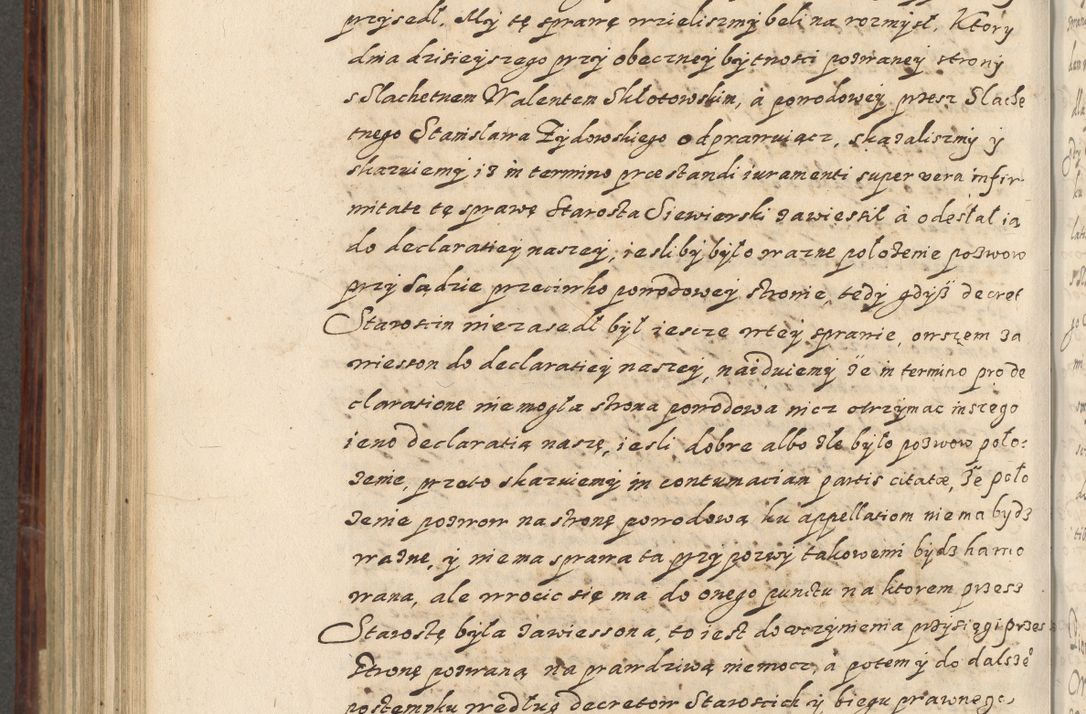 przysedł. My tę sprawę wzieliszmy beli na rozmysł. Ktory
dnia dzisieyszego przy obeczney bytnosci pozwaney strony
s Slachetnem Walentem Skłotowskim, á powodowey przez Slache
tnego Stanisława Zydowskiego odprawuiącz, skazaliszmy y
skazuiemy iz in termino præstandi iuramenti super vera infir
mitate tę sprawę Starosta Siewierski zawiesił á odesłał ią
do declaratiey naszey, iesliby było wazne położenie pozwow
przy Sądzie przeciwko powodowey stronie, tedy gdyß decret
Staroscin niezasedł był iescze wtey sprawie, owszem za
wieszon do declaratiey naszey, naiduiemy że in termino pro de
claratione niemogła strona powodowa nicz otrzymac inszego
ieno declaratią naszę, iesli dobre albo zle było pozwow poło:
zenie, przeto skazuiemy in contumaciam partis citatæ, że poło
zenie pozwow na stronę powodową ku appellatiom niema bydz
wazne, y niema sprawa ta przy pozwy takowemi bydz hamo
wana, ale wrocic się ma do onego punctu na ktorem przez
Starostę była zawieszona, to iest do uczynienia przysięgi przez
stronę pozwaną na prawdziwą niemocz, á potem y do dalszego
postempku według decretow Staroscich y biegu prawnego